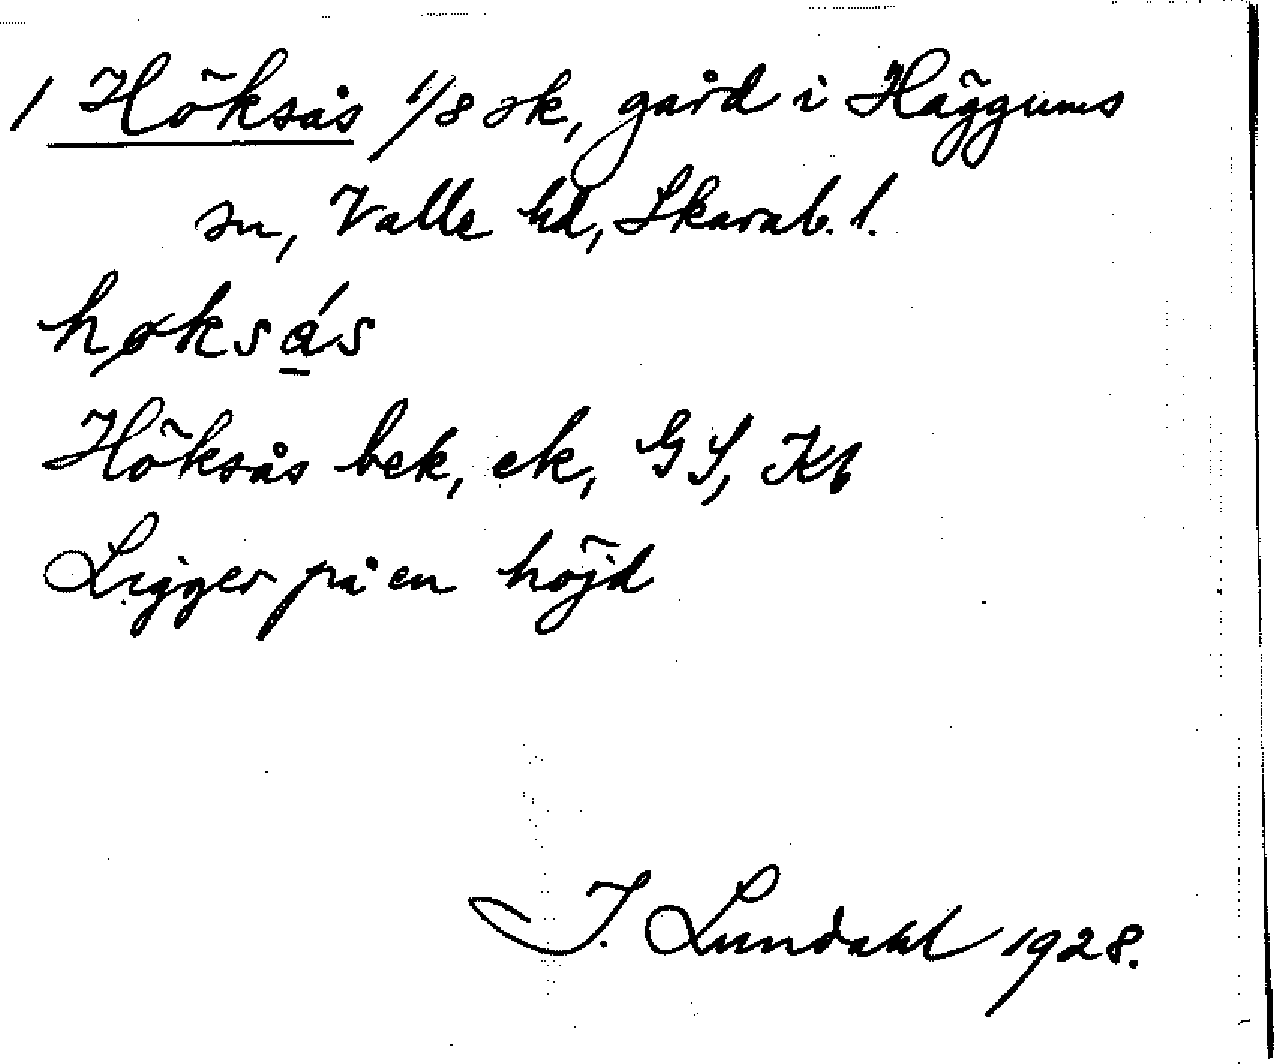 1 Höksås 1/8 sk, gård i Häggums
sn, Valle hd, Skarab. l.
høksá̱s
Höksås bek, ek, GS, Kb
Ligger på en höjd
I. Lundahl 1928.